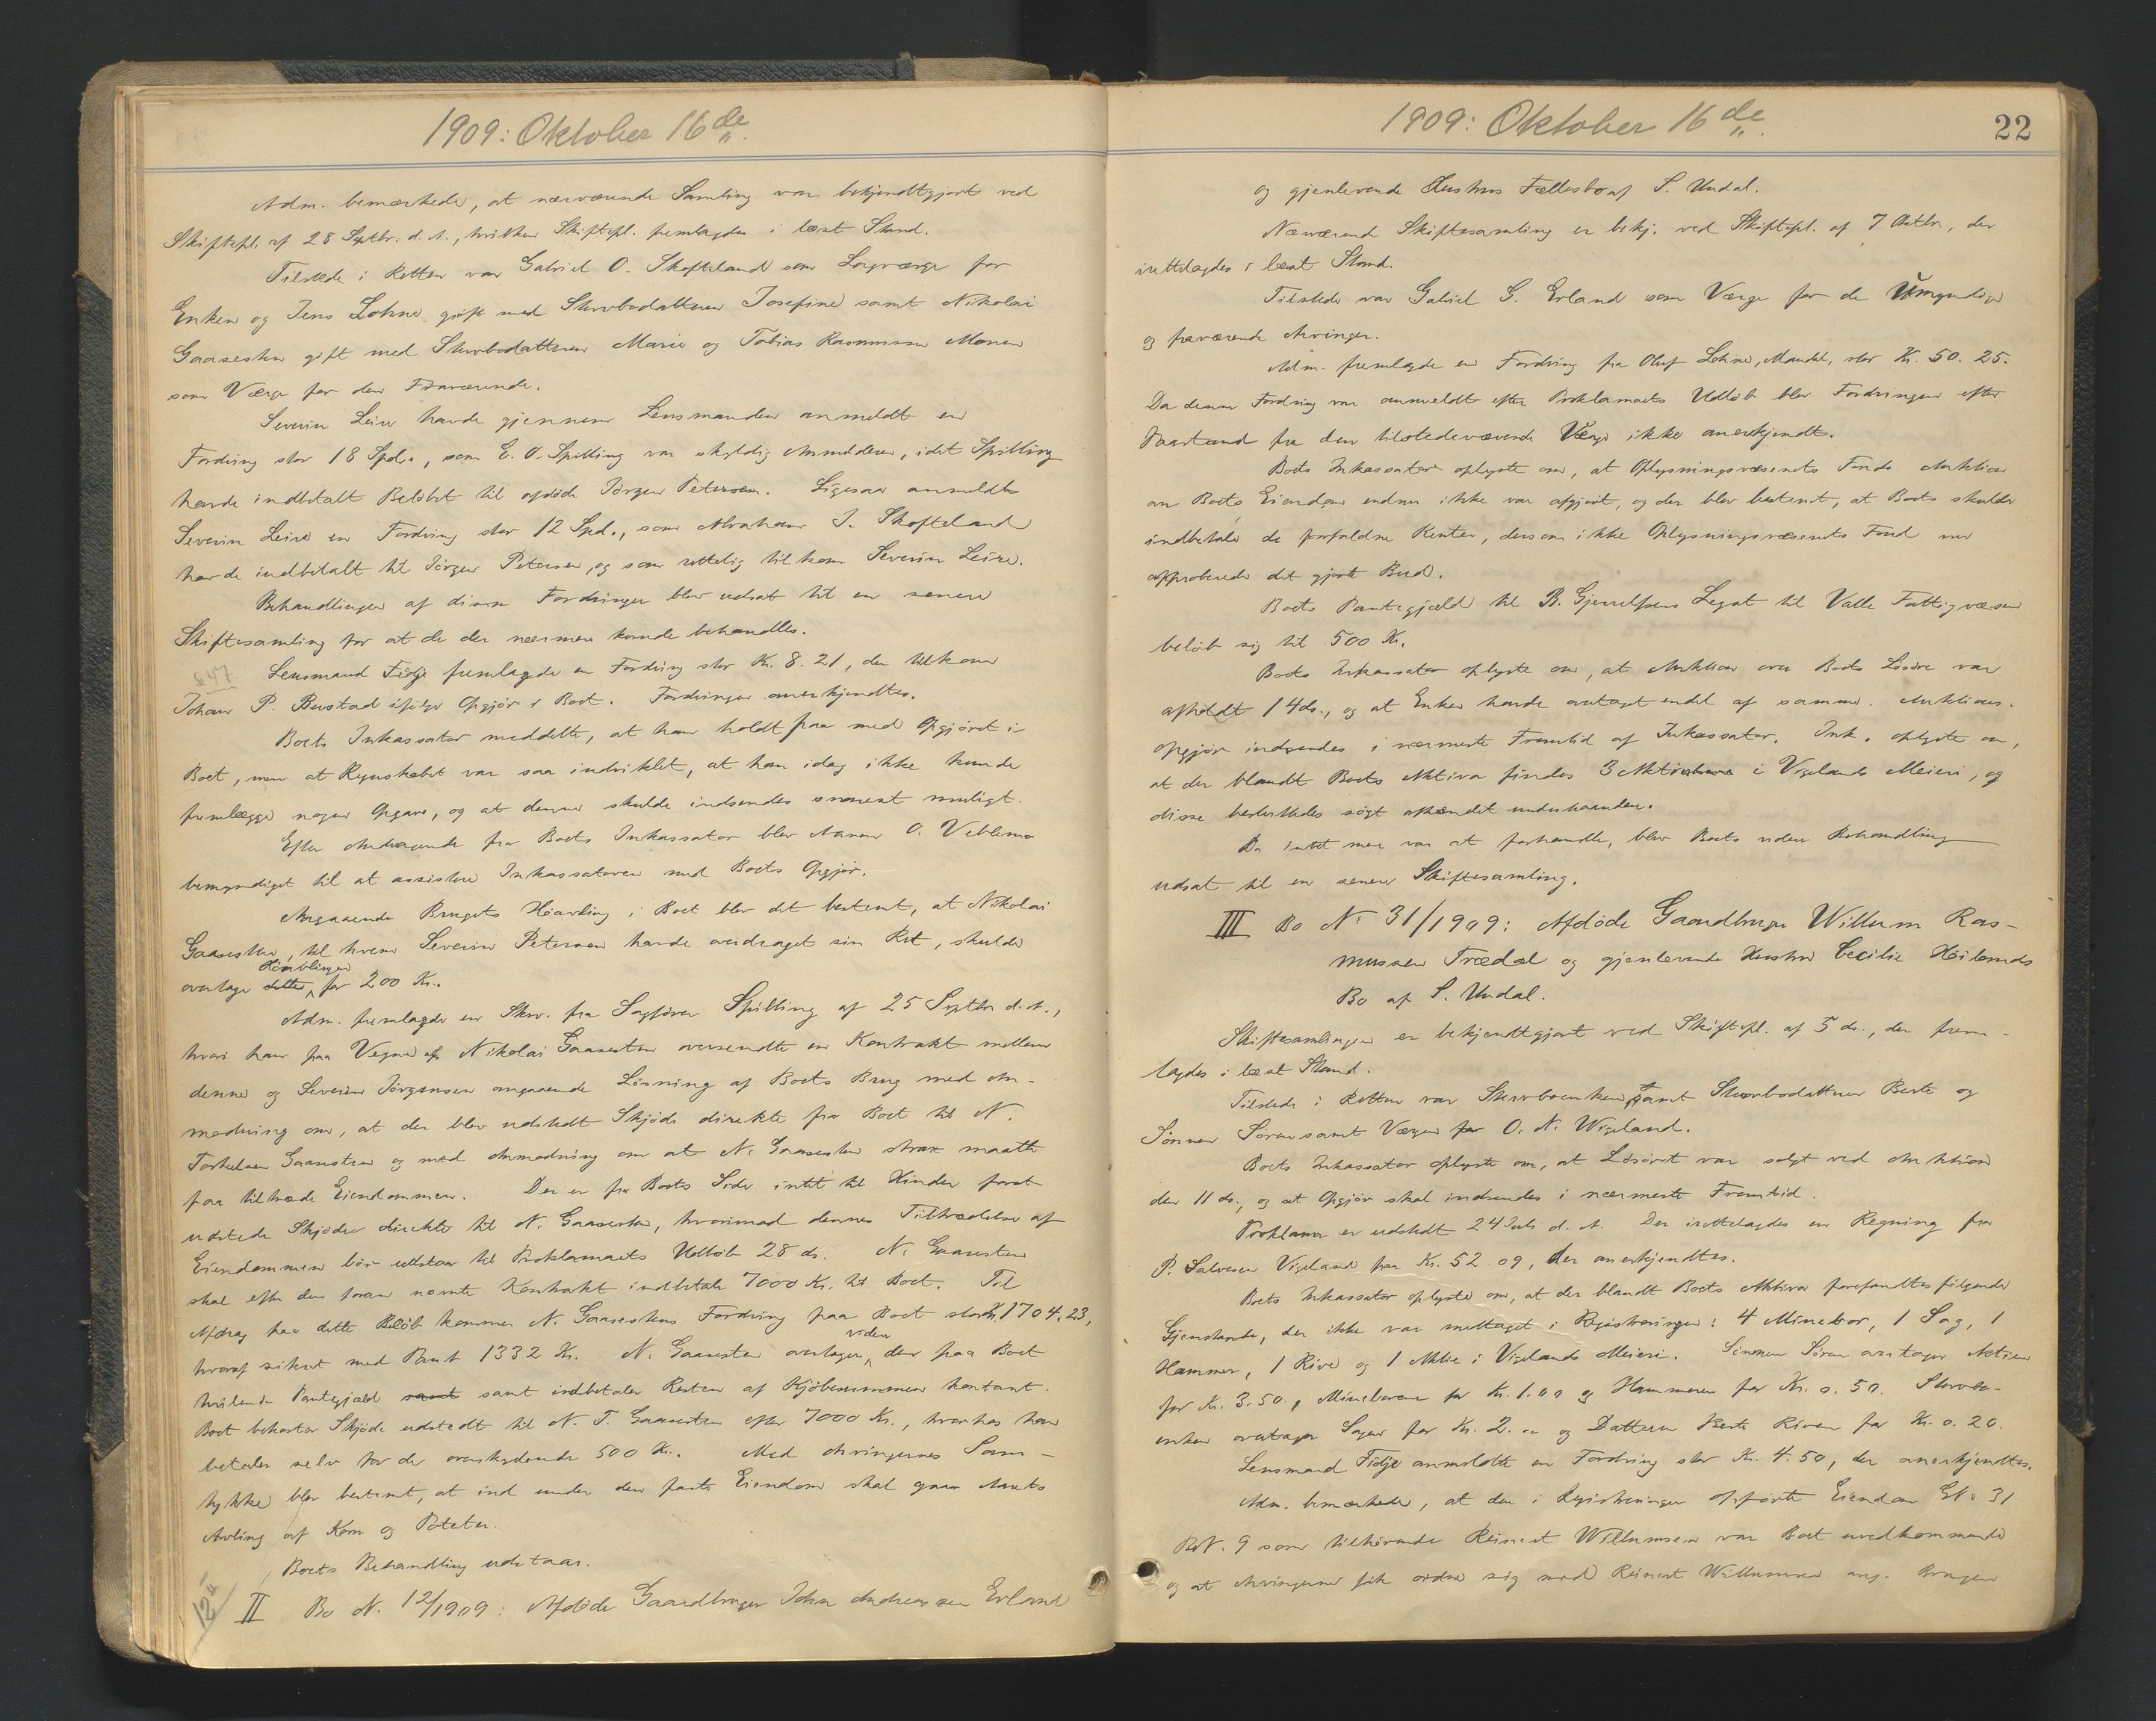 1909: Oktober 16de
Adm. bemærkede, at nærværende Samling var bekjendtgjort ved
Skiftepl. af 28 Septbr. d. A., hvilken Skiftepl. fremlagdes i læst Stand.
Tilstede i Retten var Gabriel O. Skofteland som Lagværge for
Enken og Jens Lohne gift med Stervbodatteren Josefine samt Nikolai
Gaasesten gift med Stervbodatteren Marie og Tobias Rasmussen Monen
som Værge for den Fraværende.
Severin Leire havde gjennem Lensmanden anmeldt en
Fordring stor 18 Spd., som E. O. Spilling var skyldig Anmelderen, idet Spilling
havde indbetalt Beløbet til afdøde Jørgen Petersen. Ligesaa anmeldte
Severin Leire en Fordring stor 12 Spd., som Abraham J. Skofteland
havde indbetalt til Jørgen Petersen, og som rettelig tilkom Severin Leire.
Behandlingen af disse Fordringer blev udsat til en senere
Skiftesamling for at de der nærmere kunde behandles.
Lensmand Fidje fremlagde en Fordring stor Kr. 8.21, der tilkom
Johan P. Bustad ifølge Opgjør i Boet. Fordringen anerkjendtes.
Boets Inkassator meddelte, at han holdt paa med Opgjøret i
Boet, men at Regnskabet var saa indviklet, at han idag ikke kunde
fremlægge nogen Opgave, og at denne skulde indsendes snarest muligt.
Efter Andragende fra Boets Inkassator blev Aanen O. Valand
bemyndiget til at assistere Inkassatoren med Boets Opgjør.
Angaaende Brugets Høavling i Boet blev det bestemt, at Nikolai
Gaasesten, til hvem Severin Petersen havde overdraget sin Ret, skulde
Høavlingen
overtage dette for 200 Kr.
Adm. fremlagde en Skr. fra Sagfører Spilling af 25 Septbr d. A.,
hvori han paa Vegne af Nikolai Gaasesten oversendte en Kontrakt mellem
denne og Severin Jørgensen angaaende Løsning af Boets Brug med An-
modning om, at der blev udstedt Skjøde direkte fra Boet til N.
Torkelsen Gaasesten og med Anmodning om at N. Gaasesten strax maatte
faa tiltræde Eiendommen. Der er fra Boets Side intet til Hinder for at
udstede Skjøde direkte til N. Gaasesten, hvorimod dennes Tiltrædelse af
Eiendommen bør udstaa til Proklamaets Udløb 28 ds. N. Gaasesten
skal efter den foran nævnte Kontrakt indbetale 7000 Kr. til Boet. Til
Afdrag paa dette Beløb kommer N. Gaasestens Fordring paa Boet stor Kr. 1704.23,
hvoraf sikret med Pant 1332 Kr. N. Gaasesten overtager videre den paa Boet
hvilende Pantegjæld samt indbetaler Resten af Kjøbesummen kontant.
Boet bekoster Skjøde udstedt til N. T. Gaasesten efter 7000 Kr., hvorhos han
betaler selv for de overskydende 500 Kr. Med Arvingernes Sam-
tykke blev bestemt, at ind under den faste Eiendom skal gaa Aarets
Avling af Korn og Poteter.
Boets Behandling udstaar.
II Bo N. 12/1909: Afdøde Gaardbruger John Andreassen Erland
1909: Oktober 16de
22
og gjenlevende Hustrus Fællesbo af S. Undal.
Nærværende Skiftesamling er bekj. ved Skiftepl. af 7 Oktbr, der
irettelagdes i læst Stand.
Tilstede var Gabriel G. Erland som Værge for de Umyndige
og fraværende Arvinger.
Adm. fremlagde en Fordring fra Oluf Lohne, Mandal, stor Kr. 50.25.
Da denne Fordring var anmeldt efter Proklamaets Udløb blev Fordringen efter
Paastand fra den tilstedeværende Værge ikke anerkjendt.
Boets Inkassator oplyste om, at Oplysningsvæsenets Fonds Auktion
over Boets Eiendom endnu ikke var afgjort, og der blev bestemt, at Boets skulde
indbetale de forfaldne Renter, dersom ikke Oplysningsvæsenets Fond nu
approberede det gjorte Bud.
Boets Pantegjæld til B. Gjerulfsens Legat til Valle Fattigvæsen
beløb sig til 500 Kr.
Boets Inkassator oplyste om, at Auktion over Boets Løsøre var
afholdt 14 ds., og at Enken havde overtaget endel af samme. Auktions-
opgjør indsendes i nærmeste Fremtid af Inkassator. Ink. oplyste om,
at der blandt Boets Aktiva findes 3 Aktier i Vigelands Meieri, og
disse besluttedes søgt afhændet underhaanden.
Da intet mere var at forhandle, blev Boets videre Behandling
udsat til en senere Skiftesamling.
III Bo N. 31/1909: Afdøde Gaardbruger Willum Ras-
mussen Trædal og gjenlevende Hustru Cecilie Høilands
Bo af S. Undal.
Skiftesamlingen er bekjendtgjort ved Skiftepl. af 5 ds., der frem-
lagdes i læst Stand.
Tilstede i Retten var Stervboenken, samt Stervbodatteren Berte og
Sønnen Søren samt Værgen for O. N. Wigeland.
Boets Inkassator oplyste om, at Løsøret var solgt ved Auktion
den 11 ds., og at Opgjør skal indsendes i nærmeste Fremtid.
Proklama er udstedt 24 Juli d. A. Der irettelagdes en Regning fra
P. Salvesen Vigeland paa Kr. 52.09, der anerkjendtes.
Boets Inkassator oplyste om, at der blandt Boets Aktiva forefandtes følgende
Gjenstande, der ikke var medtaget i Registreringen: 4 Minebor, 1 Sag, 1
Hammer, 1 Rive og 1 Aktie i Vigelands Meieri. Sønnen Søren overtager Aktien
for Kr. 3.50, Mineborene for Kr. 1.00 og Hammeren for Kr. 0.50. Stervbo-
enken overtager Sagen for Kr. 2.00 og Datteren Berte Riven for Kr. 0.20.
Lensmand Fidje anmeldte en Fordring stor Kr. 4.50, der anerkjendtes.
Adm. bemærkede, at den i Registreringen opførte Eiendom GN. 31
BN. 9 som tilhørende Reinert Willumsen var Boet uvedkommende
og at Arvingerne fik ordne sig med Reinert Willumsen ang. Brugen